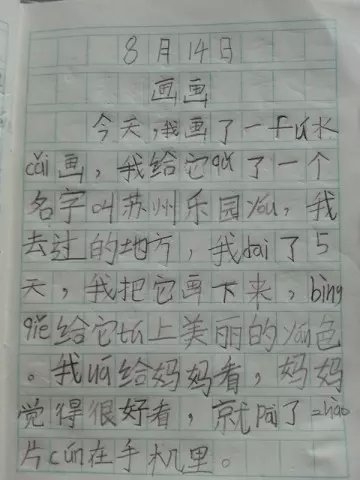 8月14日
画画
今天,我画了一fú水
cǎi画，我给它qǔ了一个
名字叫苏州乐园yóu，我
去过的地方，我dāi了5
天，我把它画下来，bìng
qiě给它tú上美丽的yán色
。我ná给妈妈看，妈妈
觉得很好看，就pāi了zhào
片cún在手机里。